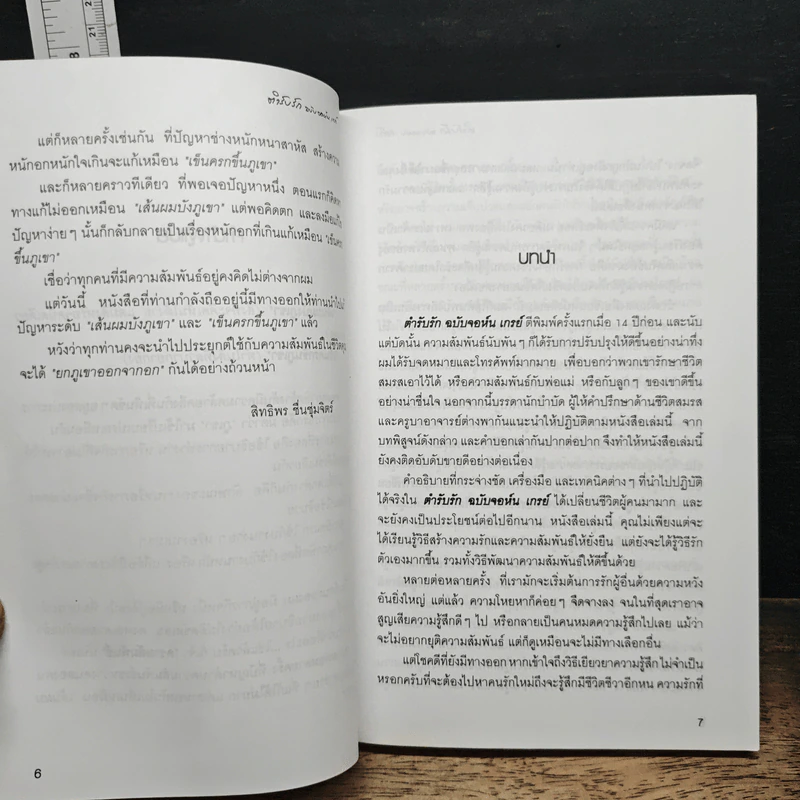 8
21
ตำรับรัก ฉบับจอห์น เกรย์
แต่ก็หลายครั้งเช่นกัน ที่ปัญหาช่างหนักหนาสาหัส สร้างความ
หนักอกหนักใจเกินจะแก้เหมือน "เข็นครกขึ้นภูเขา"
และก็หลายคราวทีเดียว ที่พอเจอปัญหาหนึ่ง ตอนแรกก็คิดหา
ทางแก้ไม่ออกเหมือน "เส้นผมบังภูเขา" แต่พอคิดตก และลงมือแก้ไข
ปัญหาง่ายๆ นั้นก็กลับกลายเป็นเรื่องหนักอกที่เกินแก้เหมือน "เข็นครก
ขึ้นภูเขา"
เชื่อว่าทุกคนที่มีความสัมพันธ์อยู่คงคิดไม่ต่างจากผม
แต่วันนี้ หนังสือที่ท่านกำลังถืออยู่นี้มีทางออกให้ท่านนำไป
ปัญหาระดับ "เส้นผมบังภูเขา" และ "เข็นครกขึ้นภูเขา" แล้ว
หวังว่าทุกท่านคงจะนำไปประยุกต์ใช้กับความสัมพันธ์ในชีวิต
จะได้ "ยกภูเขาออกจากอก" กันได้อย่างถ้วนหน้า
สิทธิพร ชื่นชุ่มจิตร์
6
บทนำ
ตำรับรัก ฉบับจอห์น เกรย์ ตีพิมพ์ครั้งแรกเมื่อ 14 ปีก่อน และนับ
แต่บัดนั้น ความสัมพันธ์นับพันๆ ก็ได้รับการปรับปรุงให้ดีขึ้นอย่างน่าทึ่ง
ผมได้รับจดหมายและโทรศัพท์มากมาย เพื่อบอกว่าพวกเขารักษาชีวิต
สมรสเอาไว้ได้ หรือความสัมพันธ์กับพ่อแม่ หรือกับลูกๆ ของเขาดีขึ้น
อย่างน่าชื่นใจ นอกจากนี้บรรดานักบำบัด ผู้ให้คำปรึกษาด้านชีวิตสมรส
และครูบาอาจารย์ต่างพากันแนะนำให้ปฏิบัติตามหนังสือเล่มนี้ จาก
บทพิสูจน์ดังกล่าว และคำบอกเล่ากันปากต่อปาก จึงทำให้หนังสือเล่มนี้
ยังคงติดอับดับขายดีอย่างต่อเนื่อง
คำอธิบายที่กระจ่างชัด เครื่องมือ และเทคนิคต่างๆ ที่นำไปปฏิบัติ
ได้จริงใน ตำรับรัก ฉบับจอห์น เกรย์ ได้เปลี่ยนชีวิตผู้คนมามาก และ
จะยังคงเป็นประโยชน์ต่อไปอีกนาน หนังสือเล่มนี้ คุณไม่เพียงแต่จะ
ได้เรียนรู้วิธีสร้างความรักและความสัมพันธ์ให้ยั่งยืน แต่ยังจะได้รู้วิธีรัก
ตัวเองมากขึ้น รวมทั้งวิธีพัฒนาความสัมพันธ์ให้ดีขึ้นด้วย
หลายต่อหลายครั้ง ที่เรามักจะเริ่มต้นการรักผู้อื่นด้วยความหวัง
อันยิ่งใหญ่ แต่แล้ว ความโหยหาก็ค่อยๆ จืดจางลง จนในที่สุดเราอาจ
สูญเสียความรู้สึกดีๆ ไป หรือกลายเป็นคนหมดความรู้สึกไปเลย แม้ว่า
จะไม่อยากยุติความสัมพันธ์ แต่ก็ดูเหมือนจะไม่มีทางเลือกอื่น
แต่โชคดีที่ยังมีทางออก หากเข้าใจถึงวิธีเยียวยาความรู้สึก ไม่จำเป็น
หรอกครับที่จะต้องไปหาคนรักใหม่ถึงจะรู้สึกมีชีวิตชีวาอีกหน ความรักที่
7